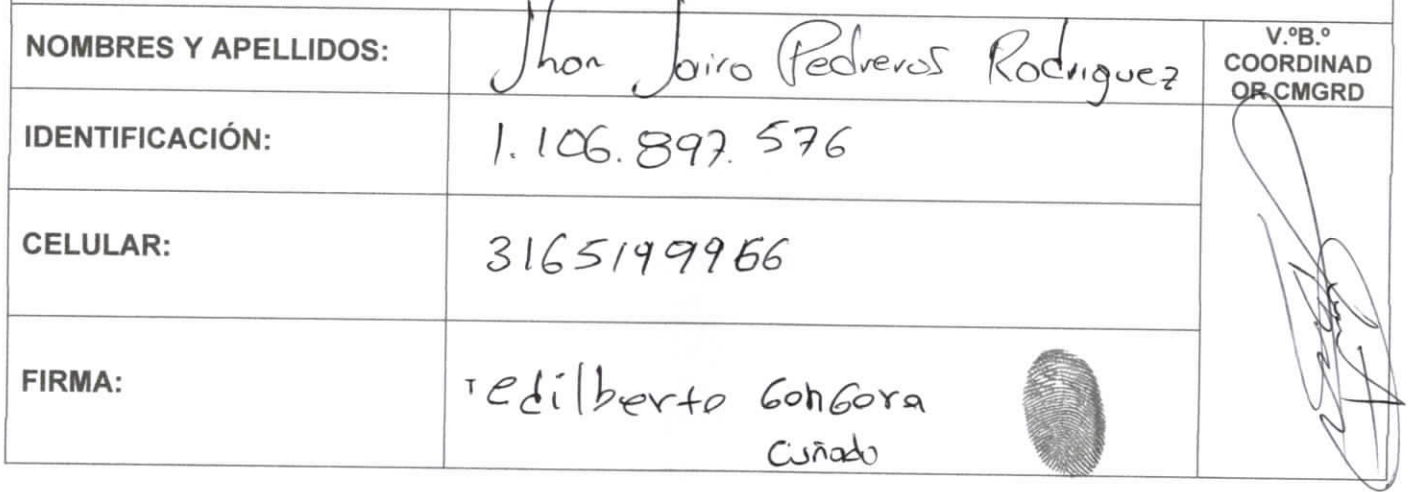 NOMBRES Y APELLIDOS: Jhon Jairo Pedreros Rodriguez
V.ºB.º
COORDINAD
OR CMGRD
IDENTIFICACIÓN: 1.106.897.576
CELULAR: 3165199966
FIRMA: edilberto GonGora
Cuñado